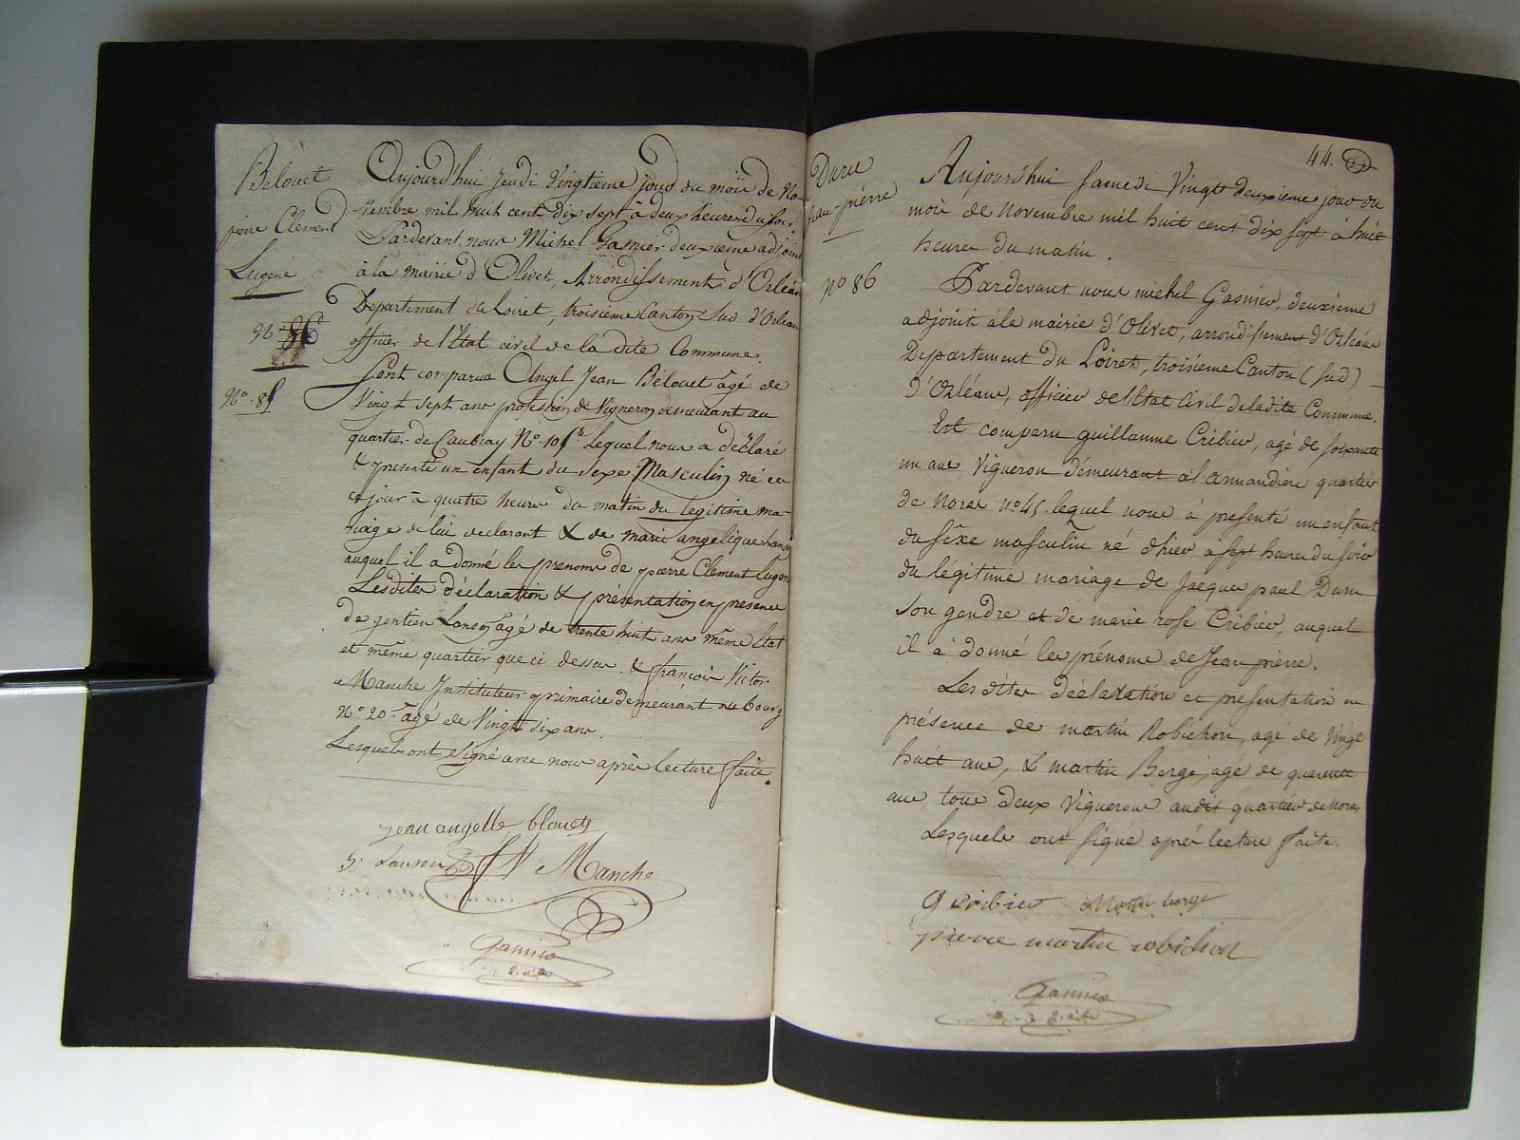 Bélouet
pierre Clement
Eugene
N° 86
N° 85
Aujourd'hui Jeudi Vingtieme jour du mois de No-
vembre mil huit cent dix sept à deux heures du soir
Pardevant nous Michel Gasnier deuxieme adjoint
à la mairie d'Olivet, Arrondissement d'Orléans
Departement du Loiret, troisieme Canton Sud d'Orleans
officier de l'Etat civil de la dite Commune.
Sont comparus Angel Jean Bélouet âgé de
Vingt sept ans profession de Vigneron demeurant au
quartier de Caubray N° 10 Lequel nous a déclaré
& presenté un enfant du sexe Masculin né en
ce jour à quatre heure du matin du legitime ma-
riage de lui declarant & de marie angelique
auquel il a donné les prenoms de pierre Clement Eugene
Lesdites déclaration & présentation en presence
de gentien Lanson âgé de trente huit ans même Etat
et même quartier que ci dessus. & françois Victor
Manche Instituteur primaire demeurant au bourg
N° 20 âgé de Vingt six ans.
Lesquels ont signé avec nous après lecture faite.
jean angelle blouet
Lanson Manche
Gasnier
44.
Duru
Jean-pierre
N° 86
Aujourd'hui samedi Vingt deuxieme jour du
mois de novembre mil huit cent dix sept à huit
heures du matin.
Pardevant nous michel Gasnier, deuxieme
adjoint à la mairie d'Olivet, arrondissement d'Orléans
Département du Loiret, troisieme Canton (sud)
d'Orléans, officier de l'Etat Civil de ladite Commune.
Est comparu guillaume Cribier, agé de soixante
un ans Vigneron demeurant à l'armandiere quartier
de Noras N° 45. lequel nous à presenté un enfant
du sexe masculin né d'hier à sept heures du soir
du légitime mariage de Jacques paul Duru
son gendre et de marie rose Cribier, auquel
il à donné les prénoms de Jean pierre.
Les dites déclaration et presentation en
présence de martin Robichon, agé de Vingt
huit ans, & martin Bergé, agé de quarante
ans tous deux Vignerons audit quartier de Noras
Lesquels ont signé après lecture faite.
G cribier Martin berge
pierre martin robichon
Gasnier